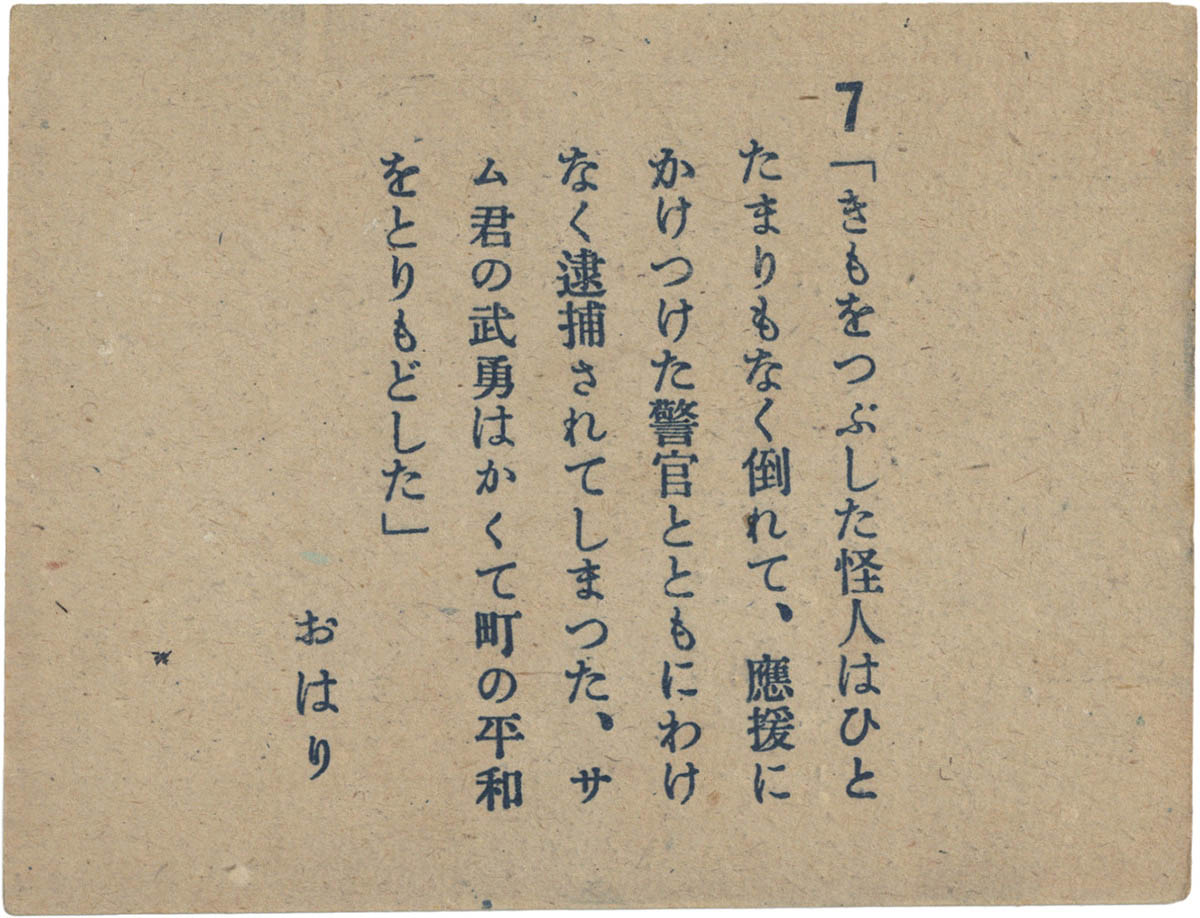 7
「きもをつぶした怪人はひと
たまりもなく倒れて、應援に
かけつけた警官とともにわけ
なく逮捕されてしまつた、サ
ム君の武勇はかくて町の平和
をとりもどした」
おはり